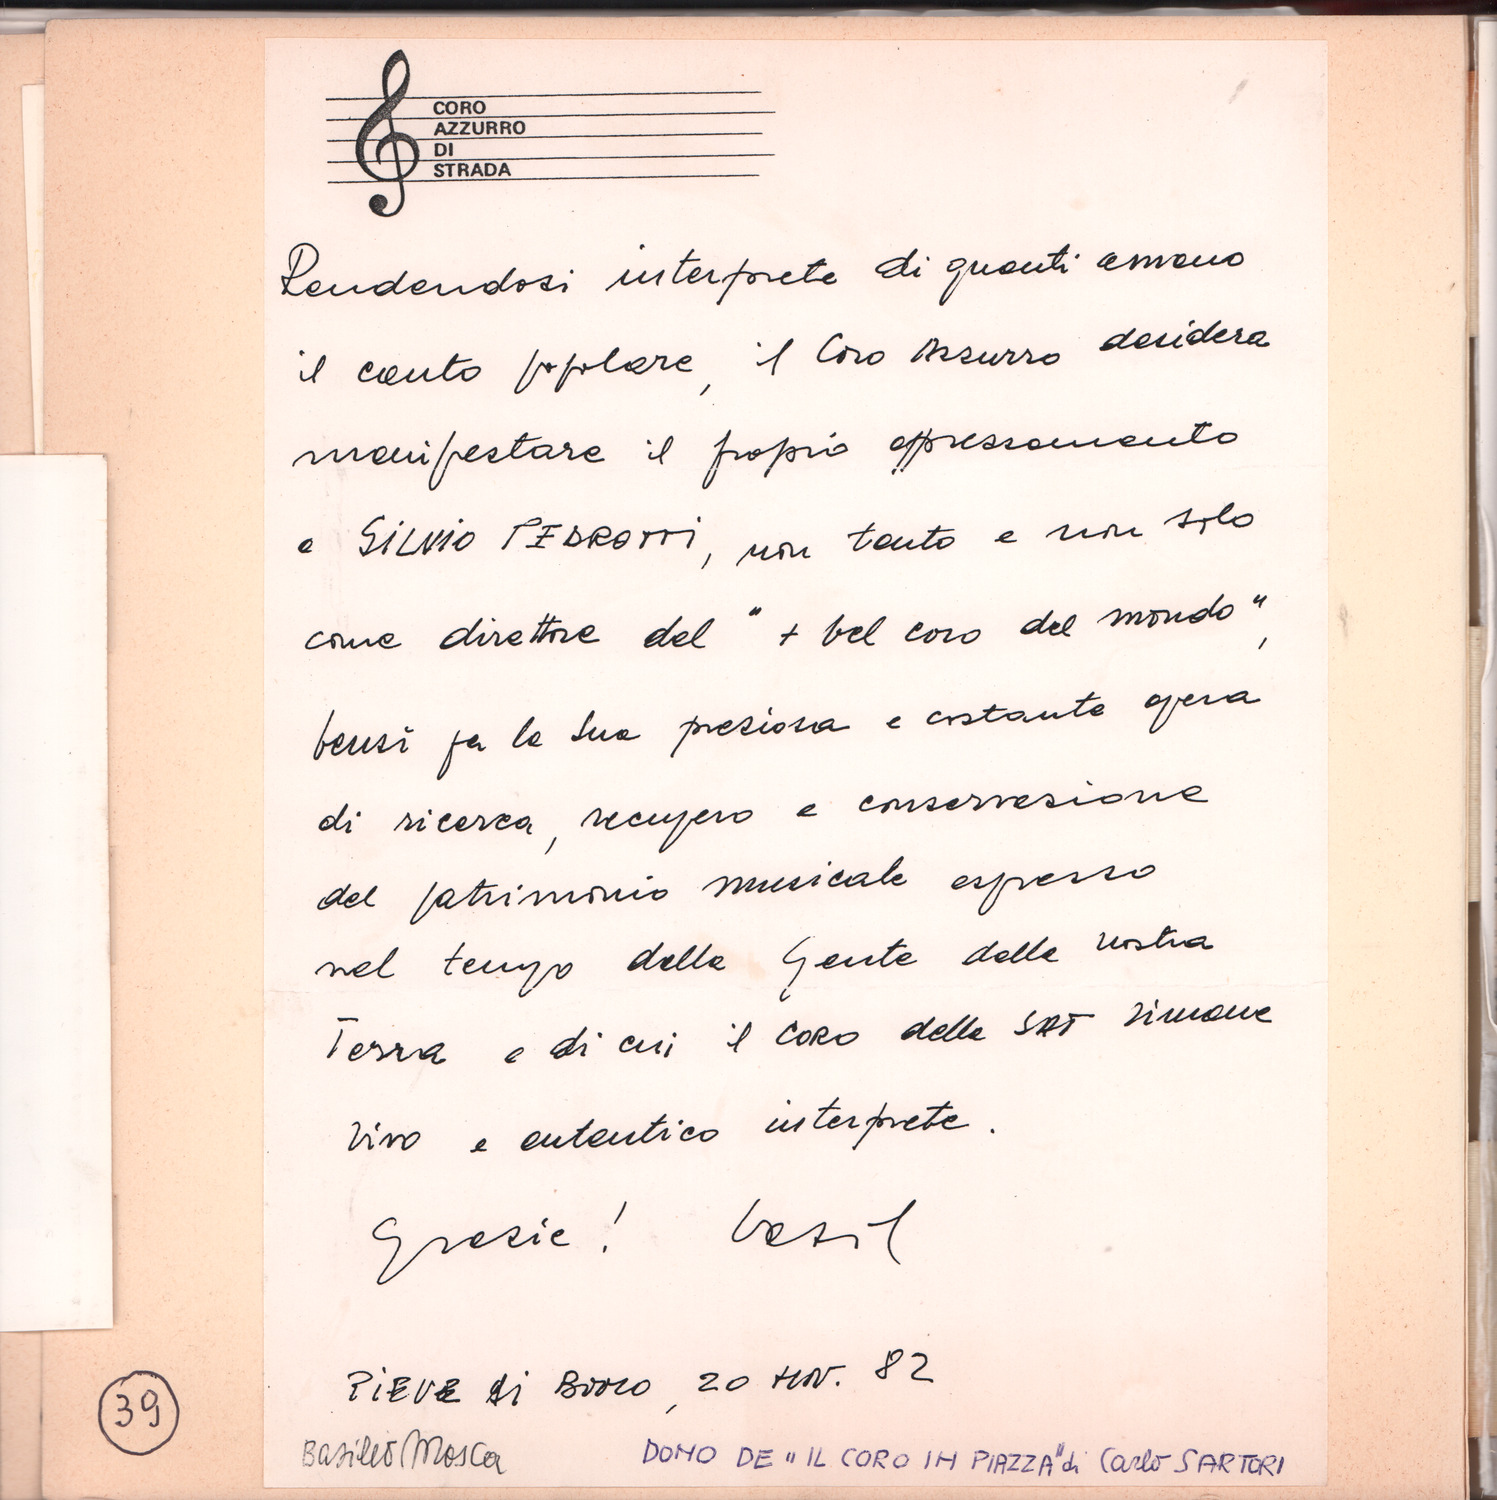 CORO
AZZURRO
DI
STRADA
Rendendosi interprete di quanti amano
il canto popolare, il Coro Azzurro desidera
manifestare il proprio apprezzamento
a SILVIO PEDROTTI, non tanto e non solo
come direttore del "+ bel coro del mondo",
bensì per la sua preziosa e costante opera
di ricerca, recupero e conservazione
del patrimonio musicale espresso
nel tempo dalla Gente della nostra
Terra e di cui il CORO della SAT rimane
vivo e autentico interprete.
Grazie! Basil
PIEVE di BONO, 20 NOV. 82
39
Basilio Mosca
DONO DE "IL CORO IN PIAZZA" di Carlo SARTORI